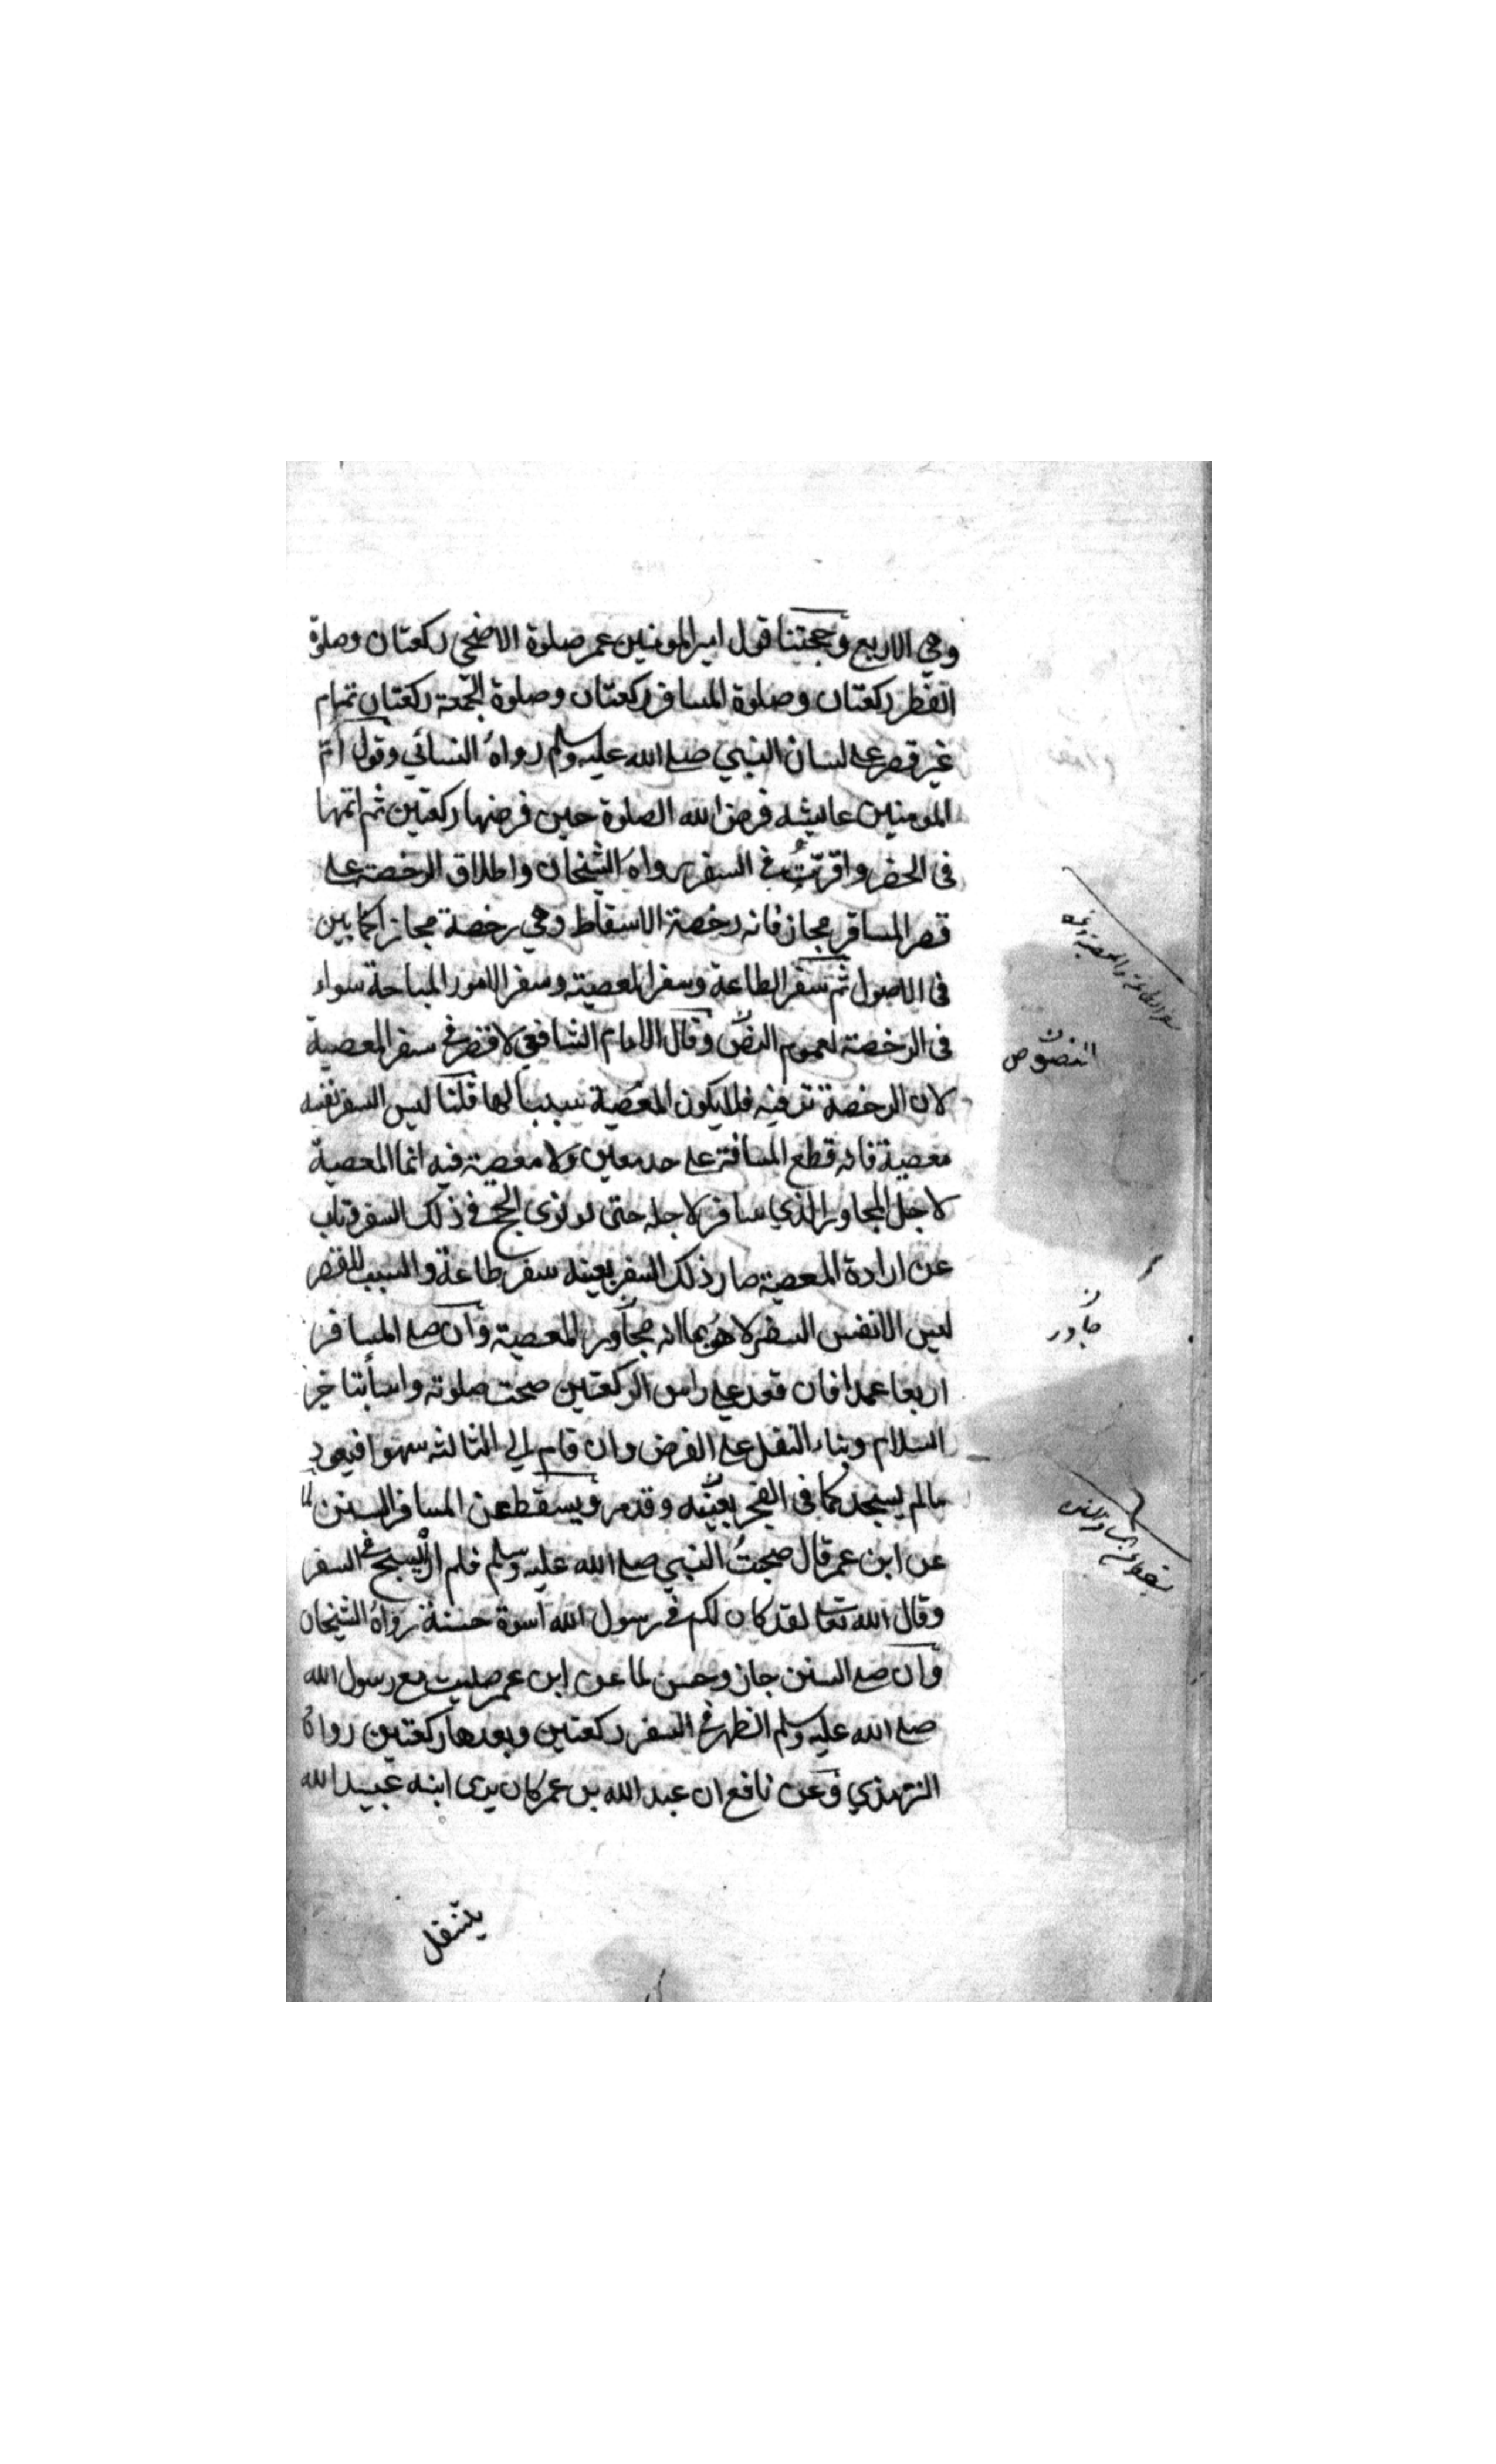 وهي الاربع وحجتنا قول امير المومنين عمر صلوة الاضحى ركعتان وصلوة
الفطر ركعتان وصلوة المسافر ركعتان وصلوة الجمعة ركعتان تمام
غير قصر على لسان النبي صلى الله عليه وسلم رواه النسائي وقول ام
المومنين عايشه فرض الله الصلوة حين فرضها ركعتين ثم اتمها
فى الحضر واقرّتْ في السفر رواه الشيخان واطلاق الرخصة على
قصر المسافر مجاز فانه رخصة الاسقاط وهي رخصة مجازا كما بين
فى الاصول ثم سفر الطاعة وسفر المعصية وسفر الامور المباحة سواء
فى الرخصة لعموم النصّ وقال الامام الشافعي لا قصر في سفر المعصية
لان الرخصة ترفيه فلا يكون المعصية سببا لها قلنا ليس السفر نفسه
معصية فانه قطع المسافة على حد معين ولا معصية فيه انما المعصية
لاجل المجاور الذي سافر لاجله حتى لو نوى الحج في ذلك السفر وتاب
عن ارادة المعصية صار ذلك السفر بعينه سفر طاعة والسبب للقصر
ليس الا نفس السفر لا هو بما انه مجاور المعصية وان صلى المسافر
اربعا عمدا فان قعد على راس الركعتين صحت صلوته واساء بتاخير
السلام وبناء النفل على الفرض وان قام الي الثالثه سهوا فيعود
مالم يسجد كما فى الفجر بعينه وقد مر ويسقط عن المسافر السنن لما
عن ابن عمر قال صحبتُ النبي صلى الله عليه وسلم فلم اره يسبح في السفر
وقال الله تعالى لقد كان لكم في رسول الله اسوة حسنة رواه الشيخان
وان صلى السنن جاز وحسن لما عن ابن عمر صليت مع رسول الله
صلى الله عليه وسلم الظهر في السفر ركعتين وبعدها ركعتين رواه
الترمذي وعن نافع ان عبد الله بن عمر كان يرى ابنه عبيد الله
يتنفل
النصوص
جاور